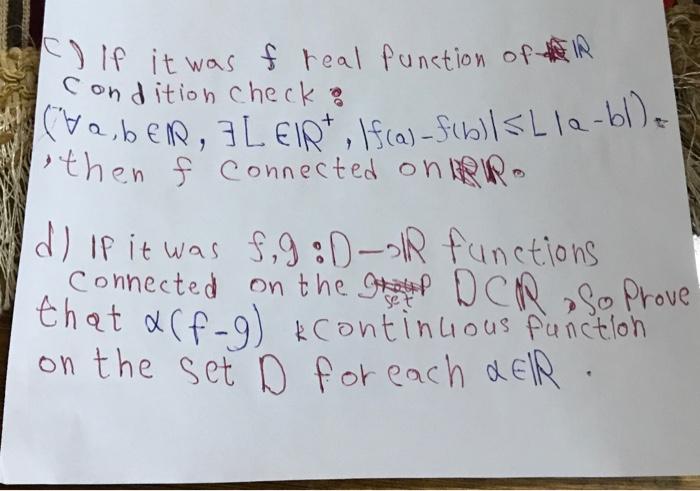 c) If it was f real function of ℝ
Condition check :
(∀a,b∈ℝ, ∃L∈ℝ⁺, |f(a)-f(b)|≤L|a-b|).
, then f connected on ℝ.
d) If it was f,g : D→ℝ functions
connected on the set D⊂ℝ, So Prove
that α(f-g) continuous function
on the set D for each α∈ℝ .